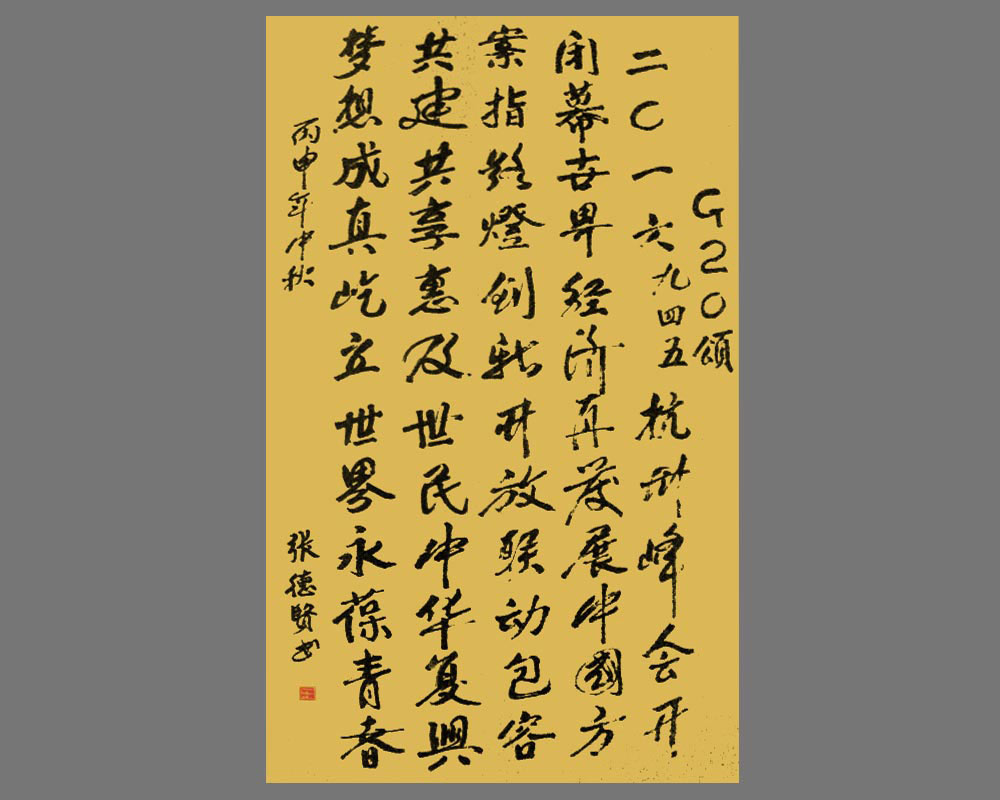 G20颂
二〇一六九四五杭州峰会开
闭幕世界经济再发展中國方
案指路燈创新开放联动包容
共建共享惠及世民中华复興
梦想成真屹立世界永葆青春
丙申年中秋
张德贤书